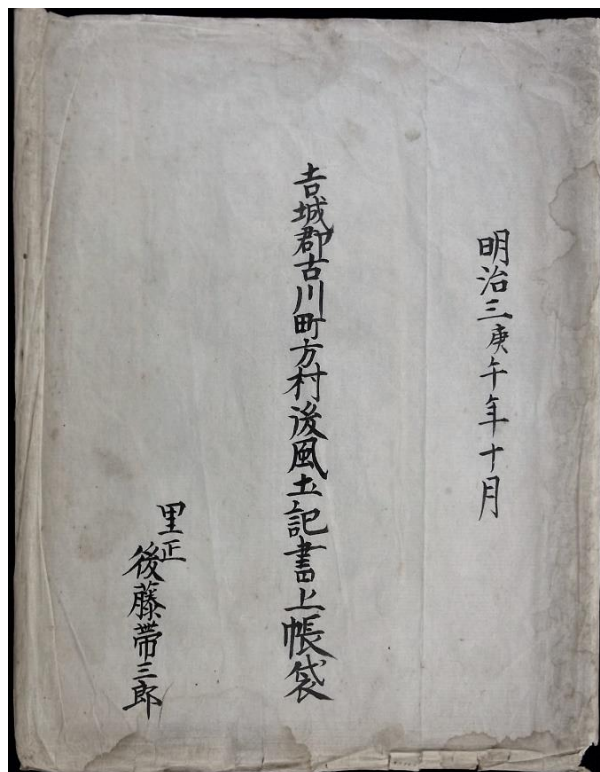 明治三庚午年十月
吉城郡古川町方村後風土記書上帳袋
里正
後藤帯三郎